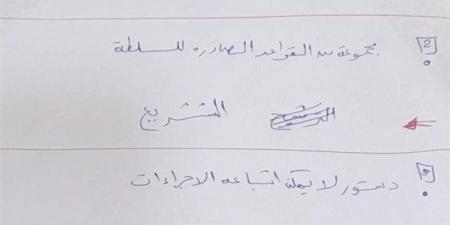 2 مجموعة من القواعد الصادره للسلطة
التشريع
دستور لا يمكن اتباعه الاجراءات